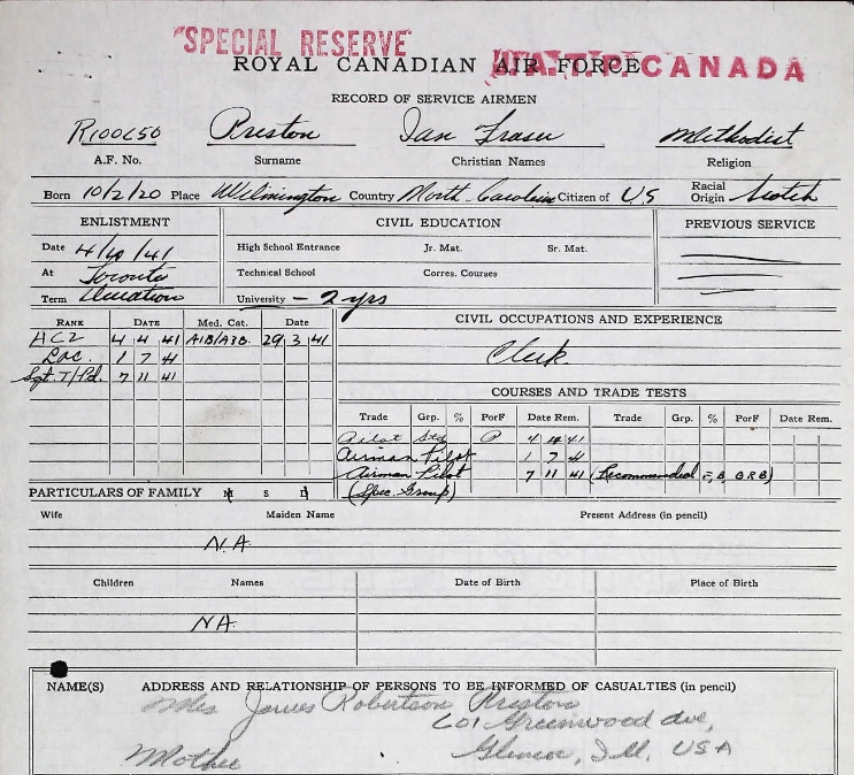 "SPECIAL RESERVE"
ROYAL CANADIAN AIR FORCE CANADA
RECORD OF SERVICE AIRMEN
Preston Ian Fraser Methodist
A.F. No. Surname Christian Names Religion
Born 10/2/20 Place Wilmington Country North Carolina Citizen of US Racial Origin Scotch
ENLISTMENT CIVIL EDUCATION PREVIOUS SERVICE
Date 4/4/41 High School Entrance Jr. Mat. Sr. Mat.
At Toronto Technical School Corres. Courses
Term Duration University - 2 yrs
RANK DATE Med. Cat. Date CIVIL OCCUPATIONS AND EXPERIENCE
AC2 4 4 41 A1B/A3B 29 3 41
Clerk.
Lac. 1 7 41
Sgt. T/Pd. 7 11 41
COURSES AND TRADE TESTS
Trade Grp. % PorF Date Rem. Trade Grp. % PorF Date Rem.
Pilot Std P 4 4 41
Airman Pilot 1 7 41
Airman Pilot 7 11 41 (Recommended
(Spec. Group)
PARTICULARS OF FAMILY M S D
Wife Maiden Name Present Address (in pencil)
N.A.
Children Names Date of Birth Place of Birth
NA
NAME(S) ADDRESS AND RELATIONSHIP OF PERSONS TO BE INFORMED OF CASUALTIES (in pencil)
Mrs James Robertson Preston
601 Greenwood Ave,
Mother Glencoe, Ill, USA